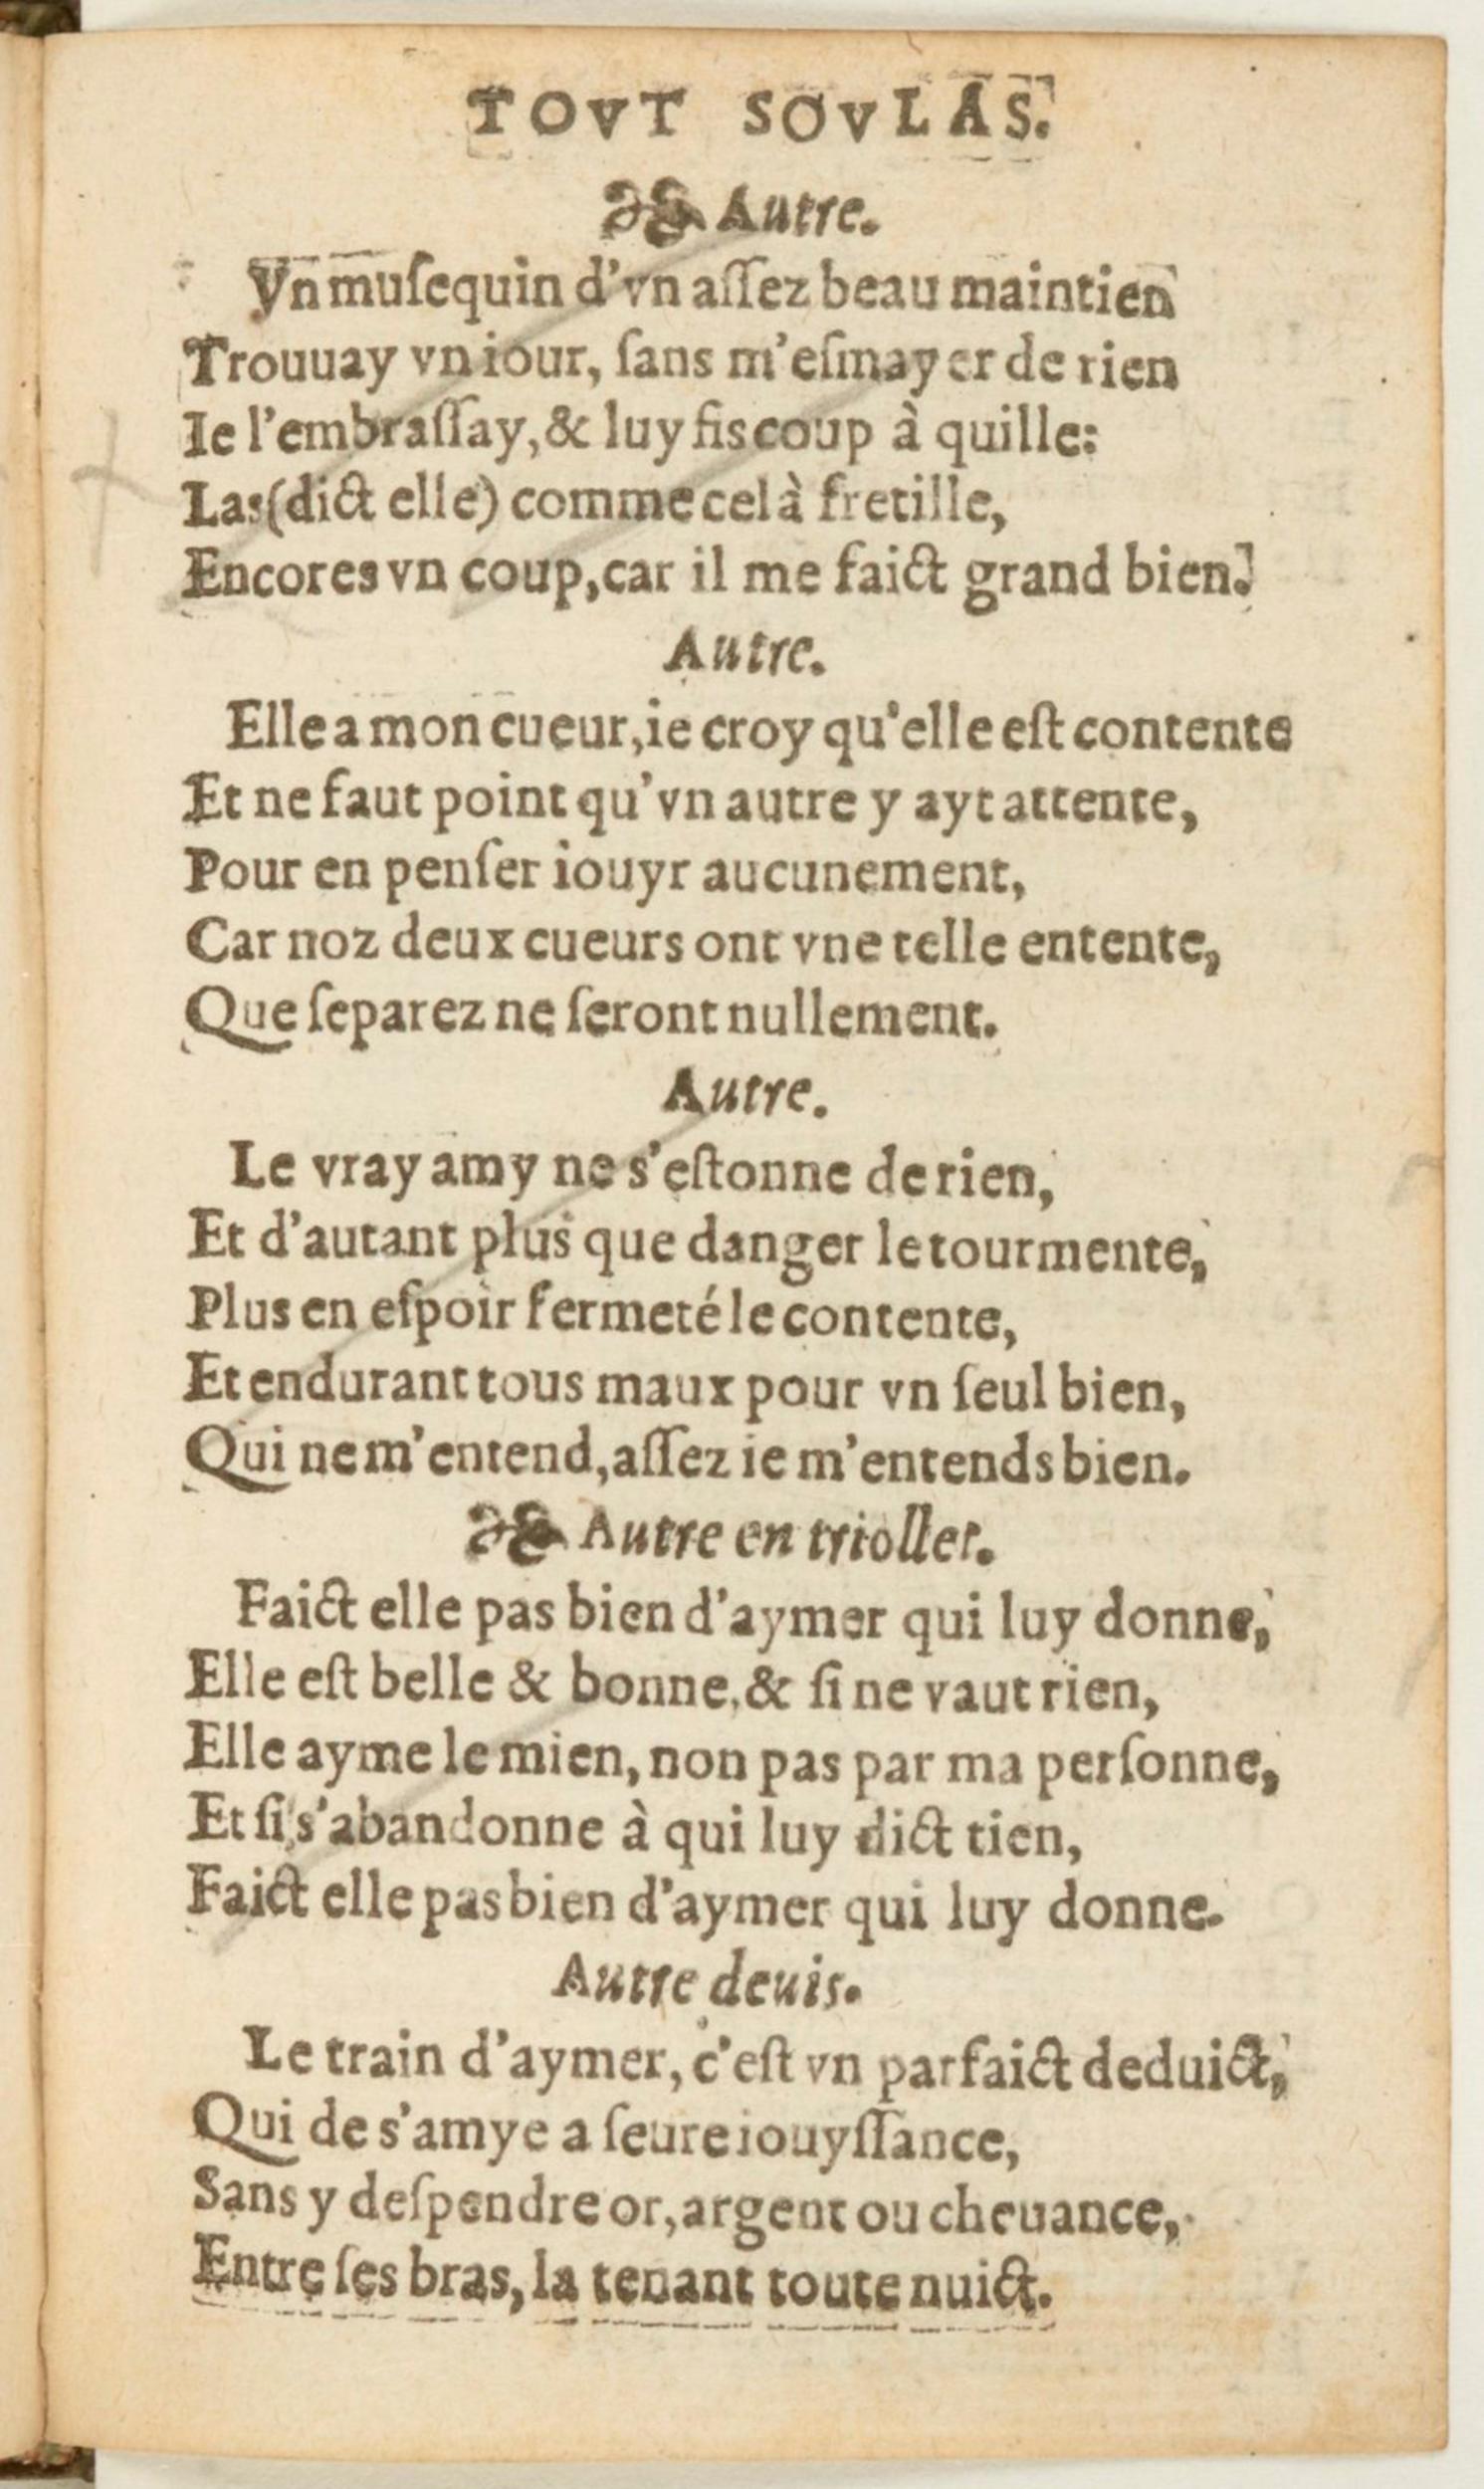 TOVT SOVLAS.
Autre.
Vn muſequin d'vn aſſez beau maintien
Trouuay vn iour, ſans m'eſmayer de rien
Ie l'embraſſay, & luy fis coup à quille:
Las (dict elle) comme celà fretille,
Encores vn coup, car il me faict grand bien.
Autre.
Elle a mon cueur, ie croy qu'elle eſt contente
Et ne faut point qu'vn autre y ayt attente,
Pour en penſer iouyr aucunement,
Car noz deux cueurs ont vne telle entente,
Que ſeparez ne ſeront nullement.
Autre.
Le vray amy ne s'eſtonne de rien,
Et d'autant plus que danger le tourmente,
Plus en eſpoir fermeté le contente,
Et endurant tous maux pour vn ſeul bien,
Qui ne m'entend, aſſez ie m'entends bien.
Autre en triollet.
Faict elle pas bien d'aymer qui luy donne,
Elle eſt belle & bonne, & ſi ne vaut rien,
Elle ayme le mien, non pas par ma perſonne,
Et ſi s'abandonne à qui luy dict tien,
Faict elle pas bien d'aymer qui luy donne.
Autre deuis.
Le train d'aymer, c'eſt vn parfaict deduict,
Qui de s'amye a ſeure iouyſſance,
Sans y deſpendre or, argent ou cheuance,
Entre ſes bras, la tenant toute nuict.